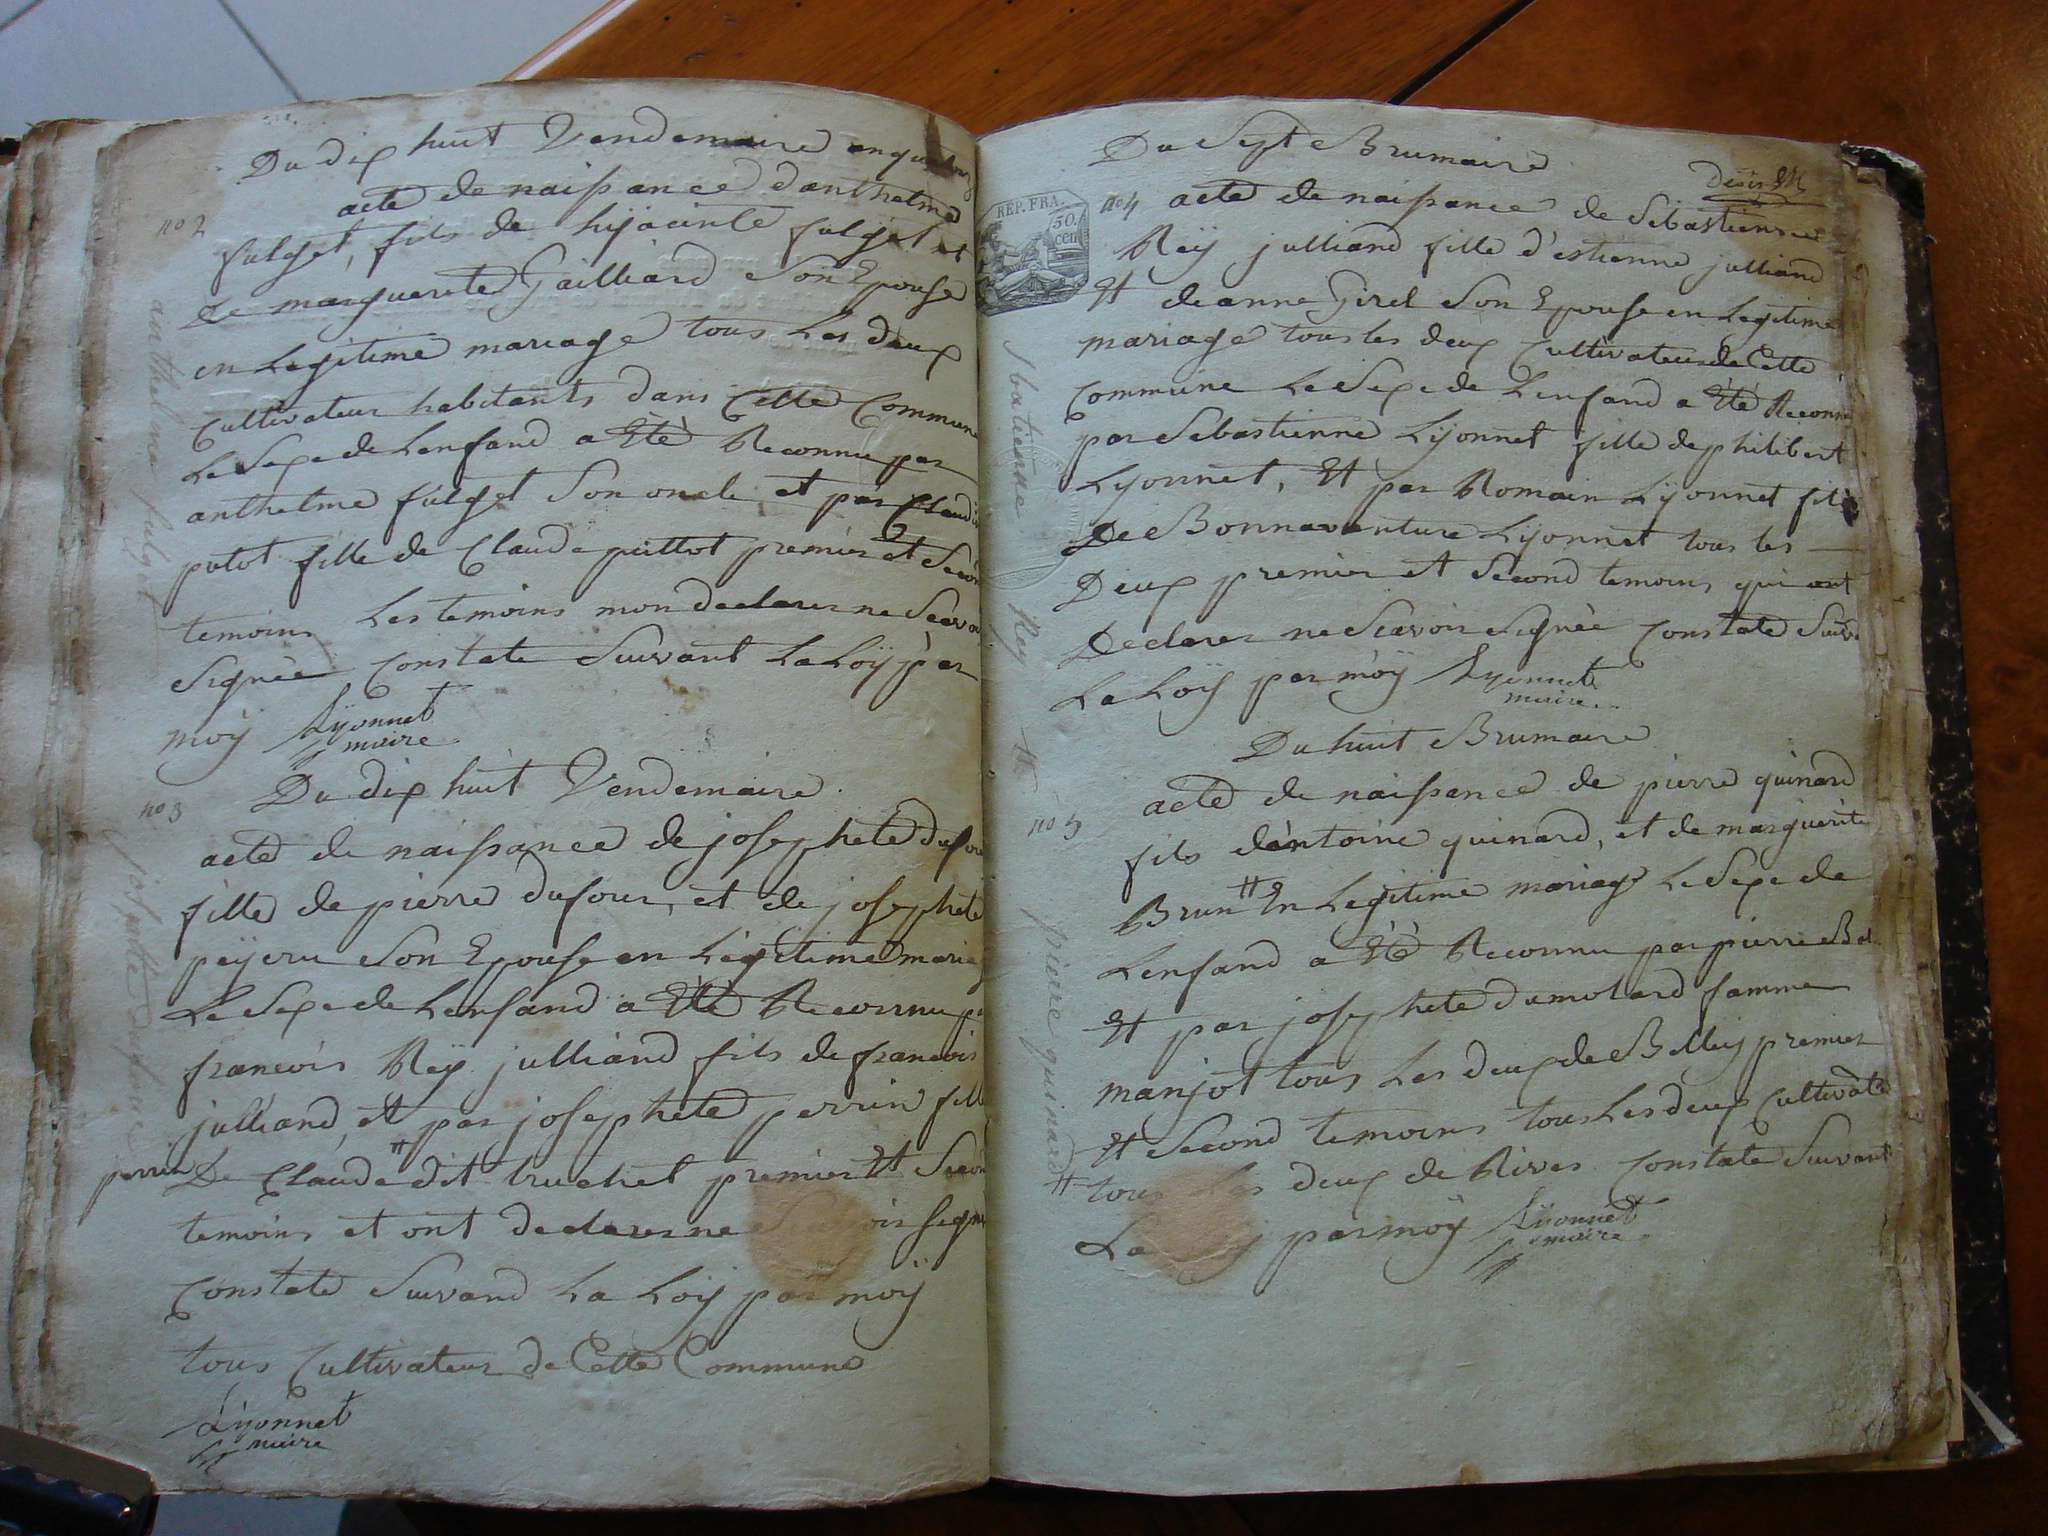 Du dix huit Vendemaire an
no 2
acte de naissance danthelme
fulget, fils de hyacinte fulget et
De marguerete Gailliard Son Epouse
en Legitime mariage tous Les deux
Cultivateur habitants dans Cette Commune
Le Sexe de Lenfand a Eté Reconnu par
anthelme fulget Son oncle et par Claudi
putot fille de Claude puittot premier et Secon
temoins Les temoins mon declarer ne Scavoi
Signée Constate Suivant La Loÿ par
moÿ Lÿonnet
maire
anthelme fulget
Du dix huit Vendemaire
no 3
acte de naissance de josephete dufou
fille de pierre dufour, et de josephete
peÿeru Son Epouse en Legitime maria
Le Sexe de Lenfand a Eté Reconnu p
francois Reÿ julliand fils de francois
julliand, et par josephete perrin fill
perrin De Claude # dit truchet premier Et Secon
temoins et ont declarer ne Scavoir Signe
Constate Suivand La Loÿ par moÿ
tous Cultivateur de Cette Commune
Lÿonnet
maire
Du Sept Brumaire
REP. FRA.
50.
cen
no 4 acte de naissance de Sebastienne
Reÿ julliand fille d'estienne julliand
Et de anne Girel Son Epouse en Legitime
mariage tous les deux Cultivateur de Cette
Commune Le Sexe de Lenfand a Eté Reconnu
par Sebastienne Lÿonnet fille de philibert
Lyonnet, Et par Romain Lÿonnet fils
De Bonnaventure Lyonnet tous les
Deux premier et Second temoins qui ont
Declarer ne Scavoir Signée Constate Suiva
La Loÿ par moÿ Lyonnet
maire
Sbatienne Rey
Du huit Brumaire
no 5
acte de naissance de pierre quinard
fils dèntoine quinard, et de marguerite
Brun # En Legitime mariage Le Sexe de
Lenfand a Eté Reconnu par pierre
Et par josephete dumolard famme
manjot tous Les deux de Belley premier
Et Second temoins tous Les deux Cultivate
# tous Les deux de Rives Constate Suivant
La Loÿ par moÿ Lÿonnet
maire
pierre quinard